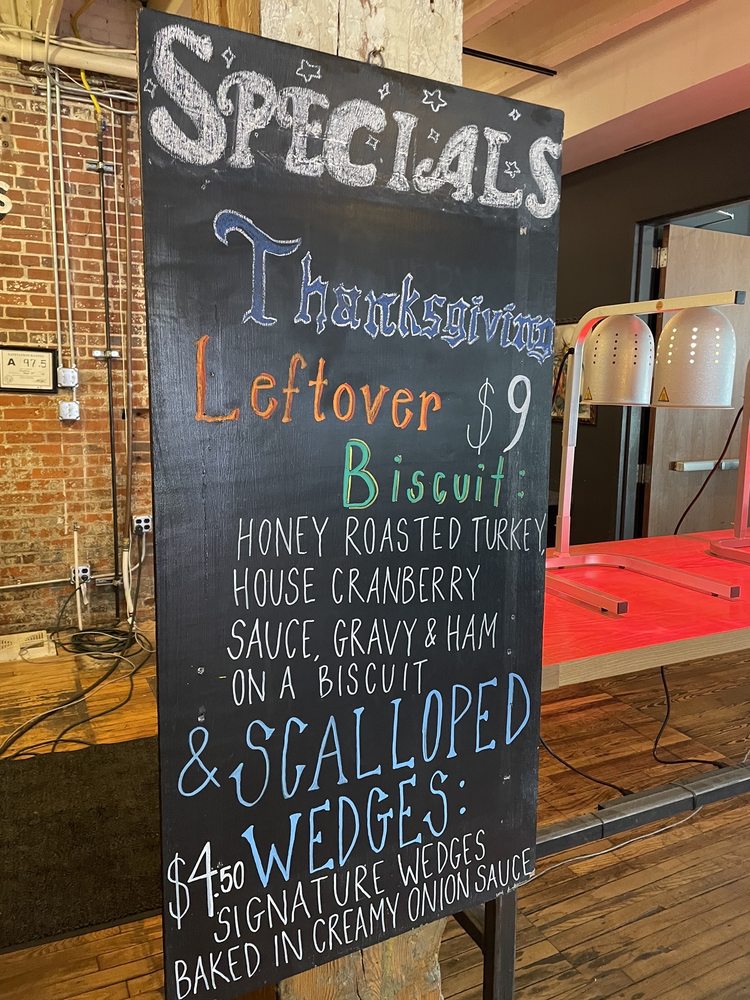 SPECIALS
Thanksgiving
Leftover $9
Biscuit:
HONEY ROASTED TURKEY,
HOUSE CRANBERRY
SAUCE, GRAVY & HAM
ON A BISCUIT
& SCALLOPED
WEDGES:
$4.50
SIGNATURE WEDGES
BAKED IN CREAMY ONION SAUCE
A 97.5
S